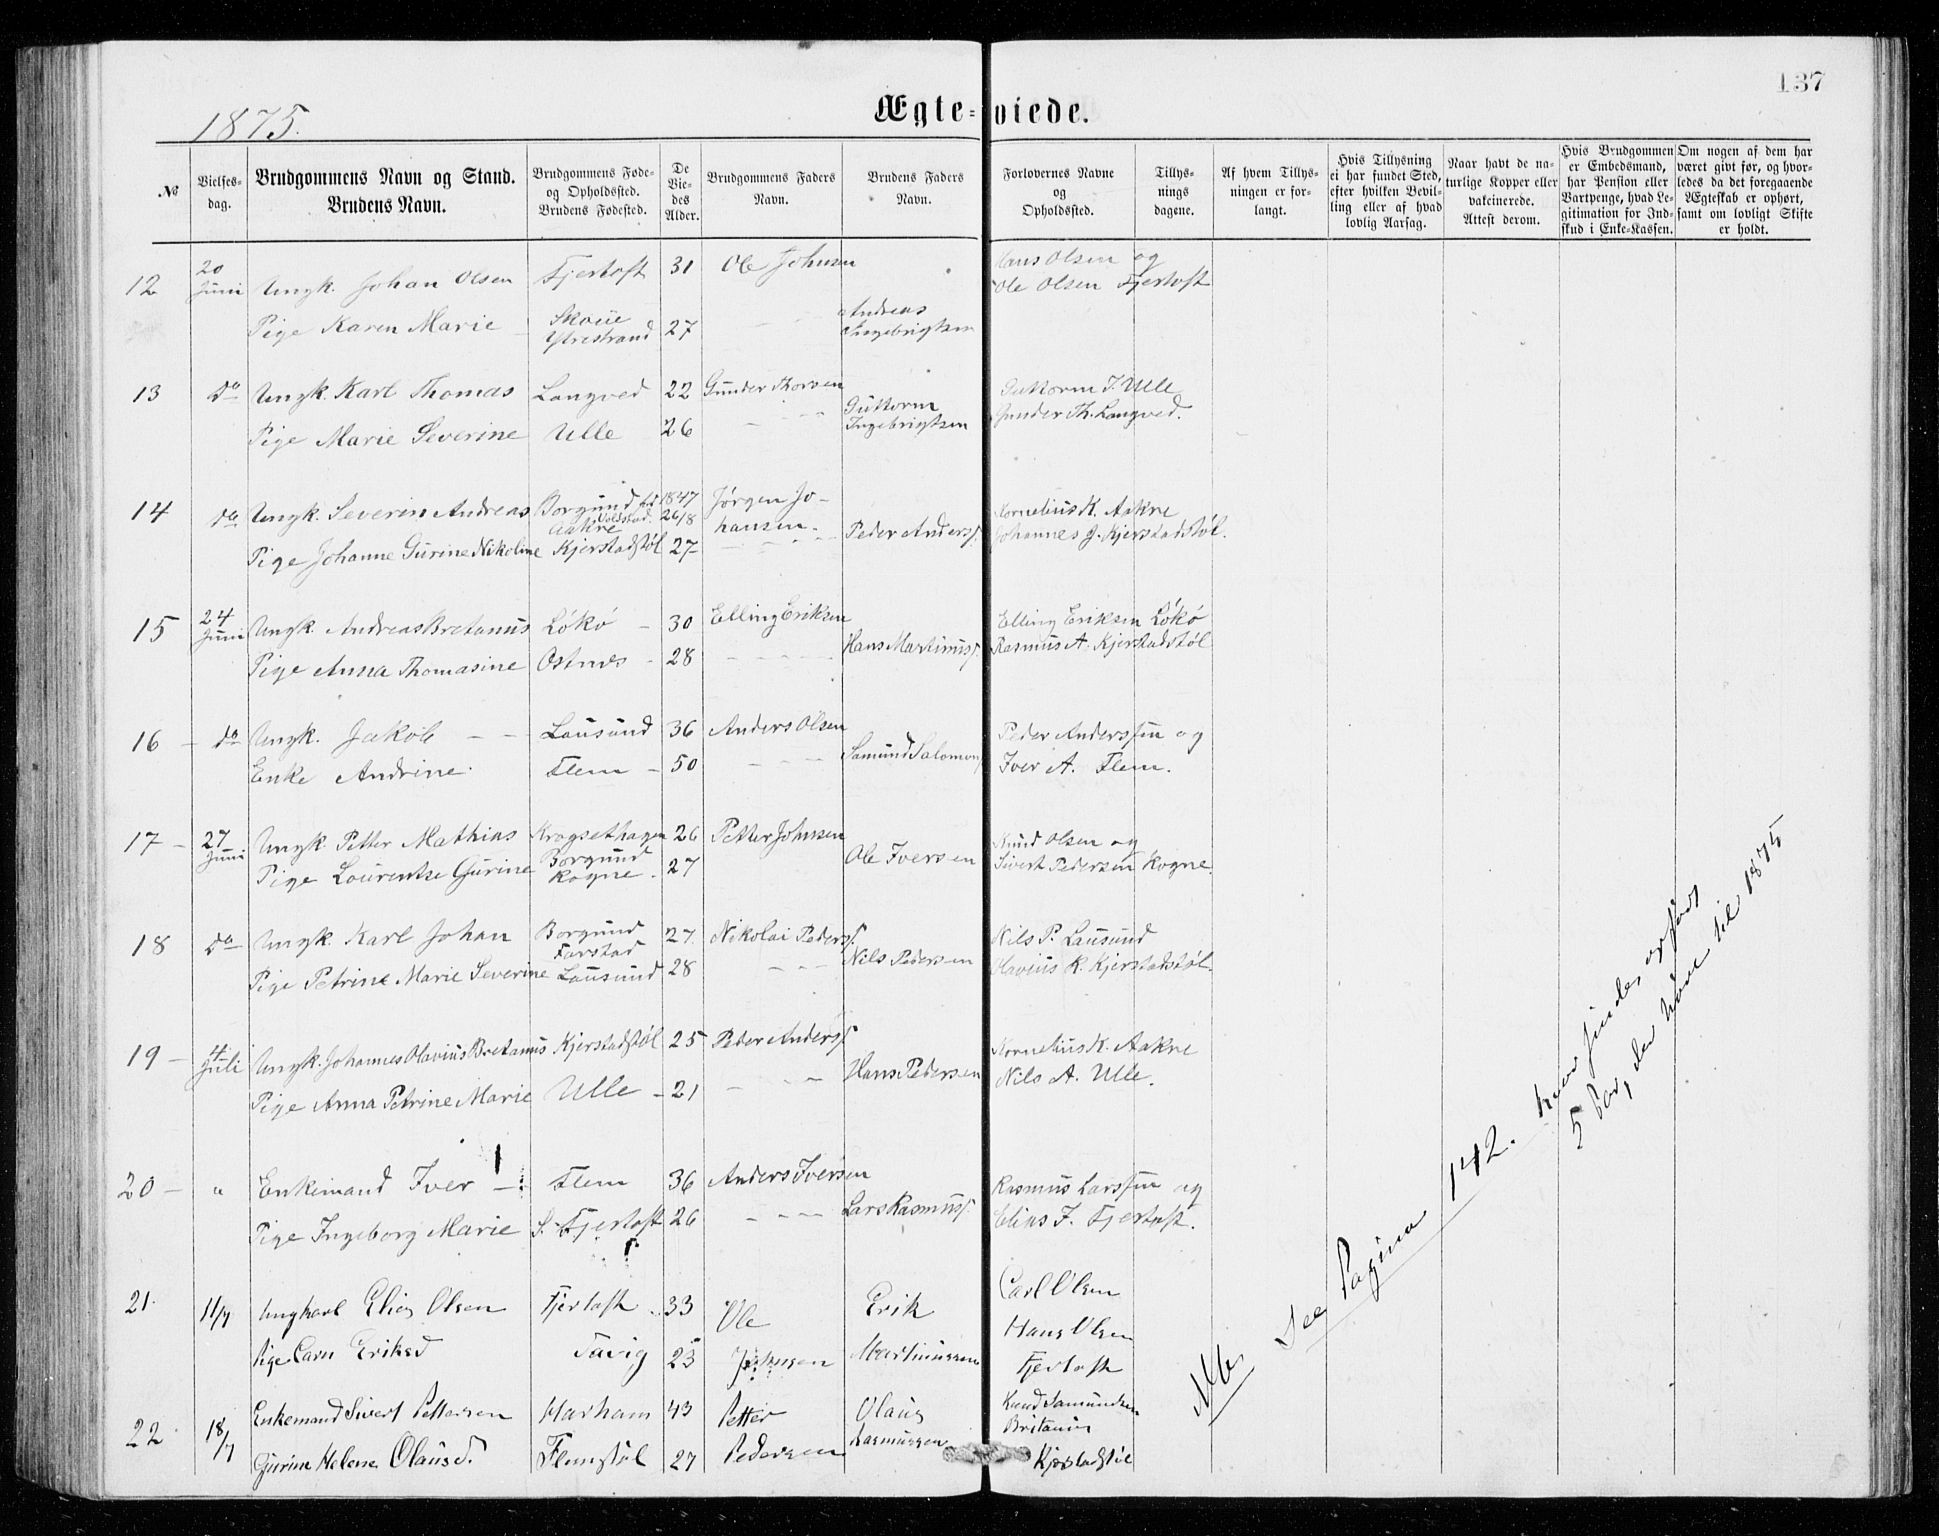 137
1875.
Ægte-viede.
№
Vielses-dag.
Brudgommens Navn og Stand.
Brudens Navn.
Brudgommens Føde- og Opholdssted.
Brudens Fødested.
De Vie-des Alder.
Brudgommens Faders Navn.
Brudens Faders Navn.
Forlovernes Navne og Opholdssted.
Tillys-nings dagene.
Af hvem Tillys-ningen er for-langt.
Hvis Tillysning ei har fundet Sted, efter hvilken Bevil-ling eller af hvad lovlig Aarsag.
Naar havt de na-turlige Kopper eller vakcinerede. Attest derom.
Hvis Brudgommen er Embedsmand, har Pension eller Vartpenge, hvad Le-gitimation for Ind-skud i Enke-Kassen.
Om nogen af dem har været givt før, og hvor-ledes da det foregaaende Ægteskab er ophørt, samt om lovligt Skifte er holdt.
12 20 Juni Ungk. Johan Olsen Fjertoft 31 Ole Johnsen Hans Olsen og
Ole Olsen Fjertoft
Pige Karen Marie Skoue Ytrestrand 27 Andreas Ingebrigtsen
13 Do Ungk. Karl Thomas Langved 22 Gunder Thorsen Guttorm I. Ulle
Gunder Th. Langved.
Pige Marie Severine Ulle 26 Guttorm Ingebrigtsen
14 do Ungk. Severin Andreas Borgund Aakre 1847 26/8 Jørgen Jo-hansen Kornelius K. Aakre
Johannes J. Kjerstadstøl.
Pige Johanne Gurine Nikoline Kjerstadstøl 27 Peder Anders.
15 24 Juni Ungk. Andreas Bretanus Løkø 30 Elling Eriksen Elling Eriksen Løkø
Rasmus A. Kjerstadstøl
Pige Anna Thomasine Ostnes 28 Hans Martinus.
16 do Ungk. Jakob Lausund 36 Anders Olsen Peder Anderssen og
Iver A. Flem.
Enke Andrine Flem 50 Samund Salomons
17 27 Juni Ungk. Petter Mathias Krogsethagen 26 Petter Johnsen Knud Olsen og
Sivert Pedersen Rogne.
Pige Lourentse Gurine Borgund Rogne 27 Ole Iversen
18 Do Ungk. Karl Johan Borgund Farstad 27. Nikolai Peders. Nils P. Lausund
Olavius R. Kjerstadstøl.
Pige Petrine Marie Severine Lausund 28 Nils Pedersen
19 4 Juli Ungk. Johannes Olavius Bretanus Kjerstadstøl 25 Peder Anders. Kornelius K. Aakre
Nils A. Ulle.
Pige Anna Petrine Marie Ulle 21 Hans Pedersen
20 " Enkemand Iver Flem 36 Anders Iversen Rasmus Larssen og
Elias J. Fjertoft.
Pige Ingeborg Marie S. Fjertoft 26 Lars Rasmus.
21. 11/7 Ungkarl Elias Olsen Fjertoft 33 Ole Johnsen Erik Martinussen Carl Olsen
Hans Olsen
Fjertoft
Pige Caren Eriksd 23
22 18/7 Enkemand Sivert Pettersen Harham 43 Petter Pedersen Olaus Rasmussen Knud Samundsen
Britanus
Kjerstadstøl
Gurine Helene Olausd. Flemstøl 27
Nb. See Pagina 142. her findes
5 Par, der hører til 1875